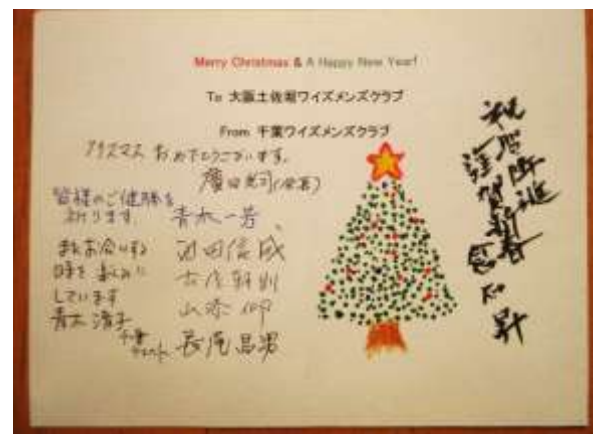 Merry Christmas & A Happy New Year!
To 大阪土佐堀ワイズメンズクラブ
From 千葉ワイズメンズクラブ
クリスマス おめでとうございます。
廣田光司(会長)
皆様のご健勝を
祈ります。 青木一芳
またお会いする
時を楽しみに
しています
青木清子
池田信成
山添仰
千葉
長尾昌男
祝
賀新春
昇